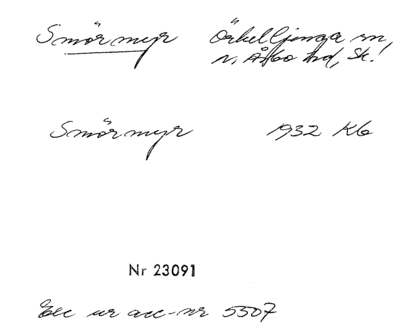 Smörmyr Örkelljunga sn,
N. Åsbo hd, Sk.
Smörmyr 1932 Kb
Nr 23091
Exc ur acc-nr 5507